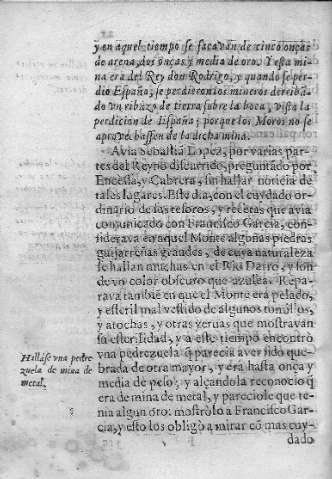 y en aquel tiempo se sacavan de cinco onças
de arena, dos onças y media de oro. Y esta mi
na era del Rey don Rodrigo, y quando se per-
dio España, se perdieron los mineros derriba
do vn ribazo de tierra sobre la boca, vista la
perdicion de España; porque los Moros no se
aprovechassen de la dicha mina.
Avia Sebastiã Lopez, por varias par-
tes del Reyno discurrido, preguntãdo por
Encesta, y Cabrera, sin hallar noticia de
tales lugares. Este dia, con el cuydado or-
dinario de sus tesoros, y recetas que avia
comunicado con Francisco Garcia, consi-
derava en aquel Monte algunas piedras
guijarreñas grandes, de cuya naturaleza
se hallan muchas en el Rio Darro, y son
de vn color obscuro que azulea. Repa-
rava tambiẽ en que el Monte era pelado,
y esteril mal vestido de algunos tomillos,
y atochas, y otras yeruas que mostravan
su esterilidad, y a este tiempo encontrò
vna pedrezuela q̃ parecia aver sido que-
Hallase vna pedre
zuela de mina de
metal.
brada de otra mayor, y era hasta onça y
media de peso, y alçandola reconocio q̃
era de mina de metal, y pareciole que te-
nia algun oro: mostròlo a Francisco Gar-
cia, y esto los obligò a mirar cõ mas cuy-
dado